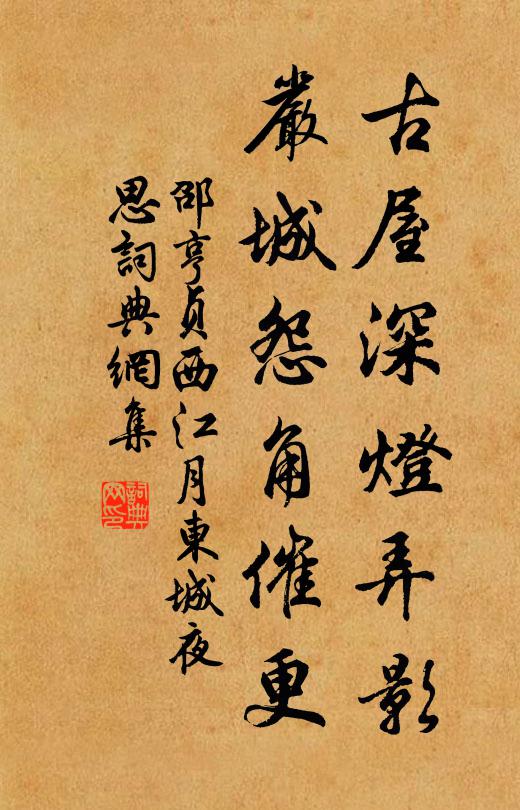 古屋深燈弄影
嚴城怨角催更
邵亨貞西江月東城夜
思詞典網集
詞典網印